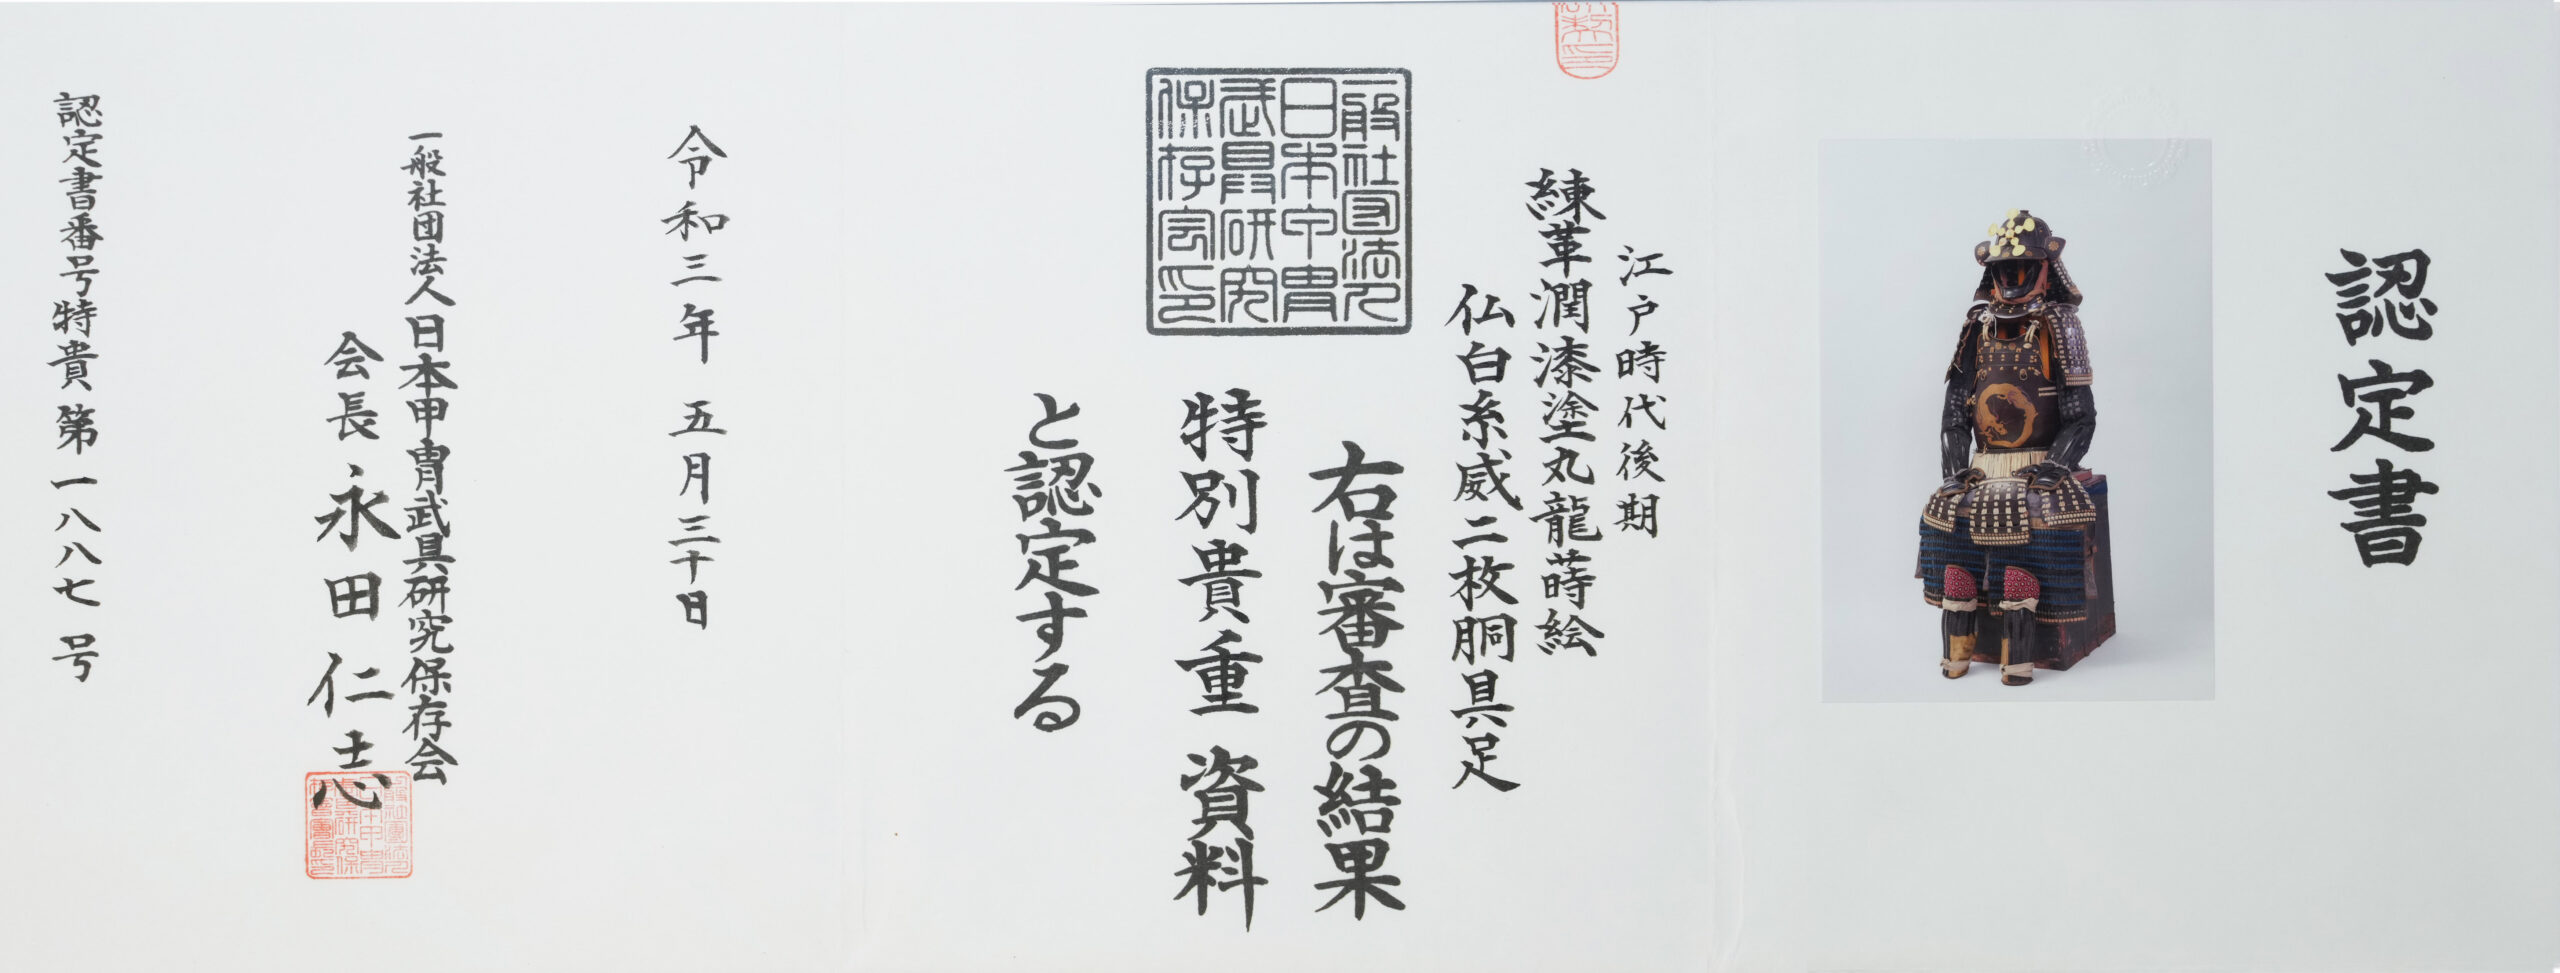 認定書
江戸時代後期
練革潤漆塗丸龍蒔絵
仏白糸威二枚胴具足
右は審査の結果
特別貴重資料
と認定する
一般社団法人
日本甲冑
武具研究
保存会印
令和三年五月三十日
一般社団法人日本甲冑武具研究保存会
会長永田仁志
認定書番号特貴第一八八七号